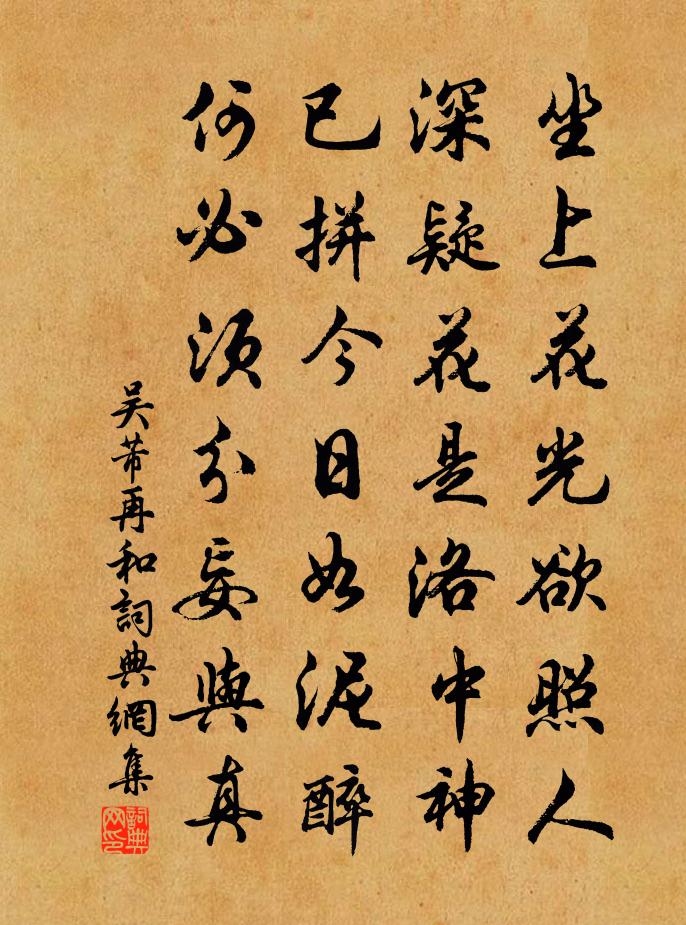 坐上花光欲照人
深疑花是洛中神
已拼今日如泥醉
何必須分妄與真
吴芾再和詞典網集
詞典网印